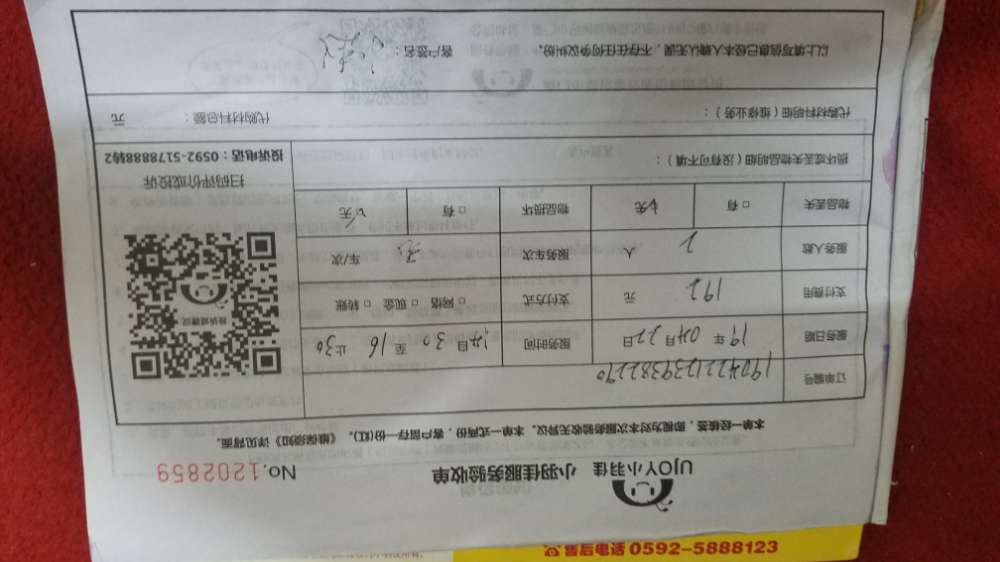 UJOY小羽佳 小羽佳服务验收单 No.1202859
本单一经核签,即视为对本次服务验收无异议。本单一式两份,客户留存一份(红)。《维保须知》详见背面。
订单编号
服务日期 19年04月22日 服务时间 14时30至16止30
支付费用 192 元 支付方式 □网络 □现金 □转账
服务人数 2 人 服务车次 车/次
物品丢失 □有 无 物品损坏 □有 无
损坏或丢失物品明细(没有可不填):
投诉或建议
扫码评价或投诉
投诉电话:0592-5178888转2
代购材料明细(维修业务): 代购材料总额: 元
以上填写信息已经本人确认无误,不存在任何争议纠纷。 客户签名:
售后电话 0592-5888123